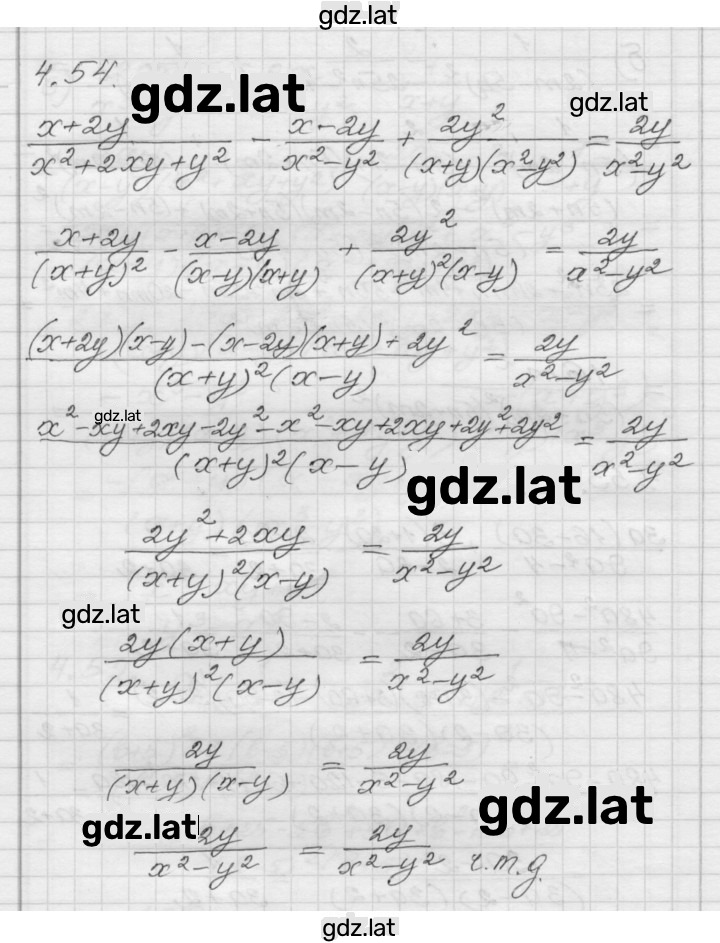 gdz.lat
4.54.
gdz.lat
gdz.lat
(x+2y)/(x²+2xy+y²) - (x-2y)/(x²-y²) + 2y²/((x+y)(x²-y²)) = 2y/(x²-y²)
(x+2y)/(x+y)² - (x-2y)/((x-y)(x+y)) + 2y²/((x+y)²(x-y)) = 2y/(x²-y²)
((x+2y)(x-y)-(x-2y)(x+y)+2y²)/((x+y)²(x-y)) = 2y/(x²-y²)
gdz.lat
(x²-xy+2xy-2y²-x²-xy+2xy+2y²+2y²)/((x+y)²(x-y)) = 2y/(x²-y²)
gdz.lat
(2y²+2xy)/((x+y)²(x-y)) = 2y/(x²-y²)
gdz.lat
2y(x+y)/((x+y)²(x-y)) = 2y/(x²-y²)
2y/((x+y)(x-y)) = 2y/(x²-y²)
gdz.lat
gdz.lat
2y/(x²-y²) = 2y/(x²-y²) ч.т.д.
gdz.lat